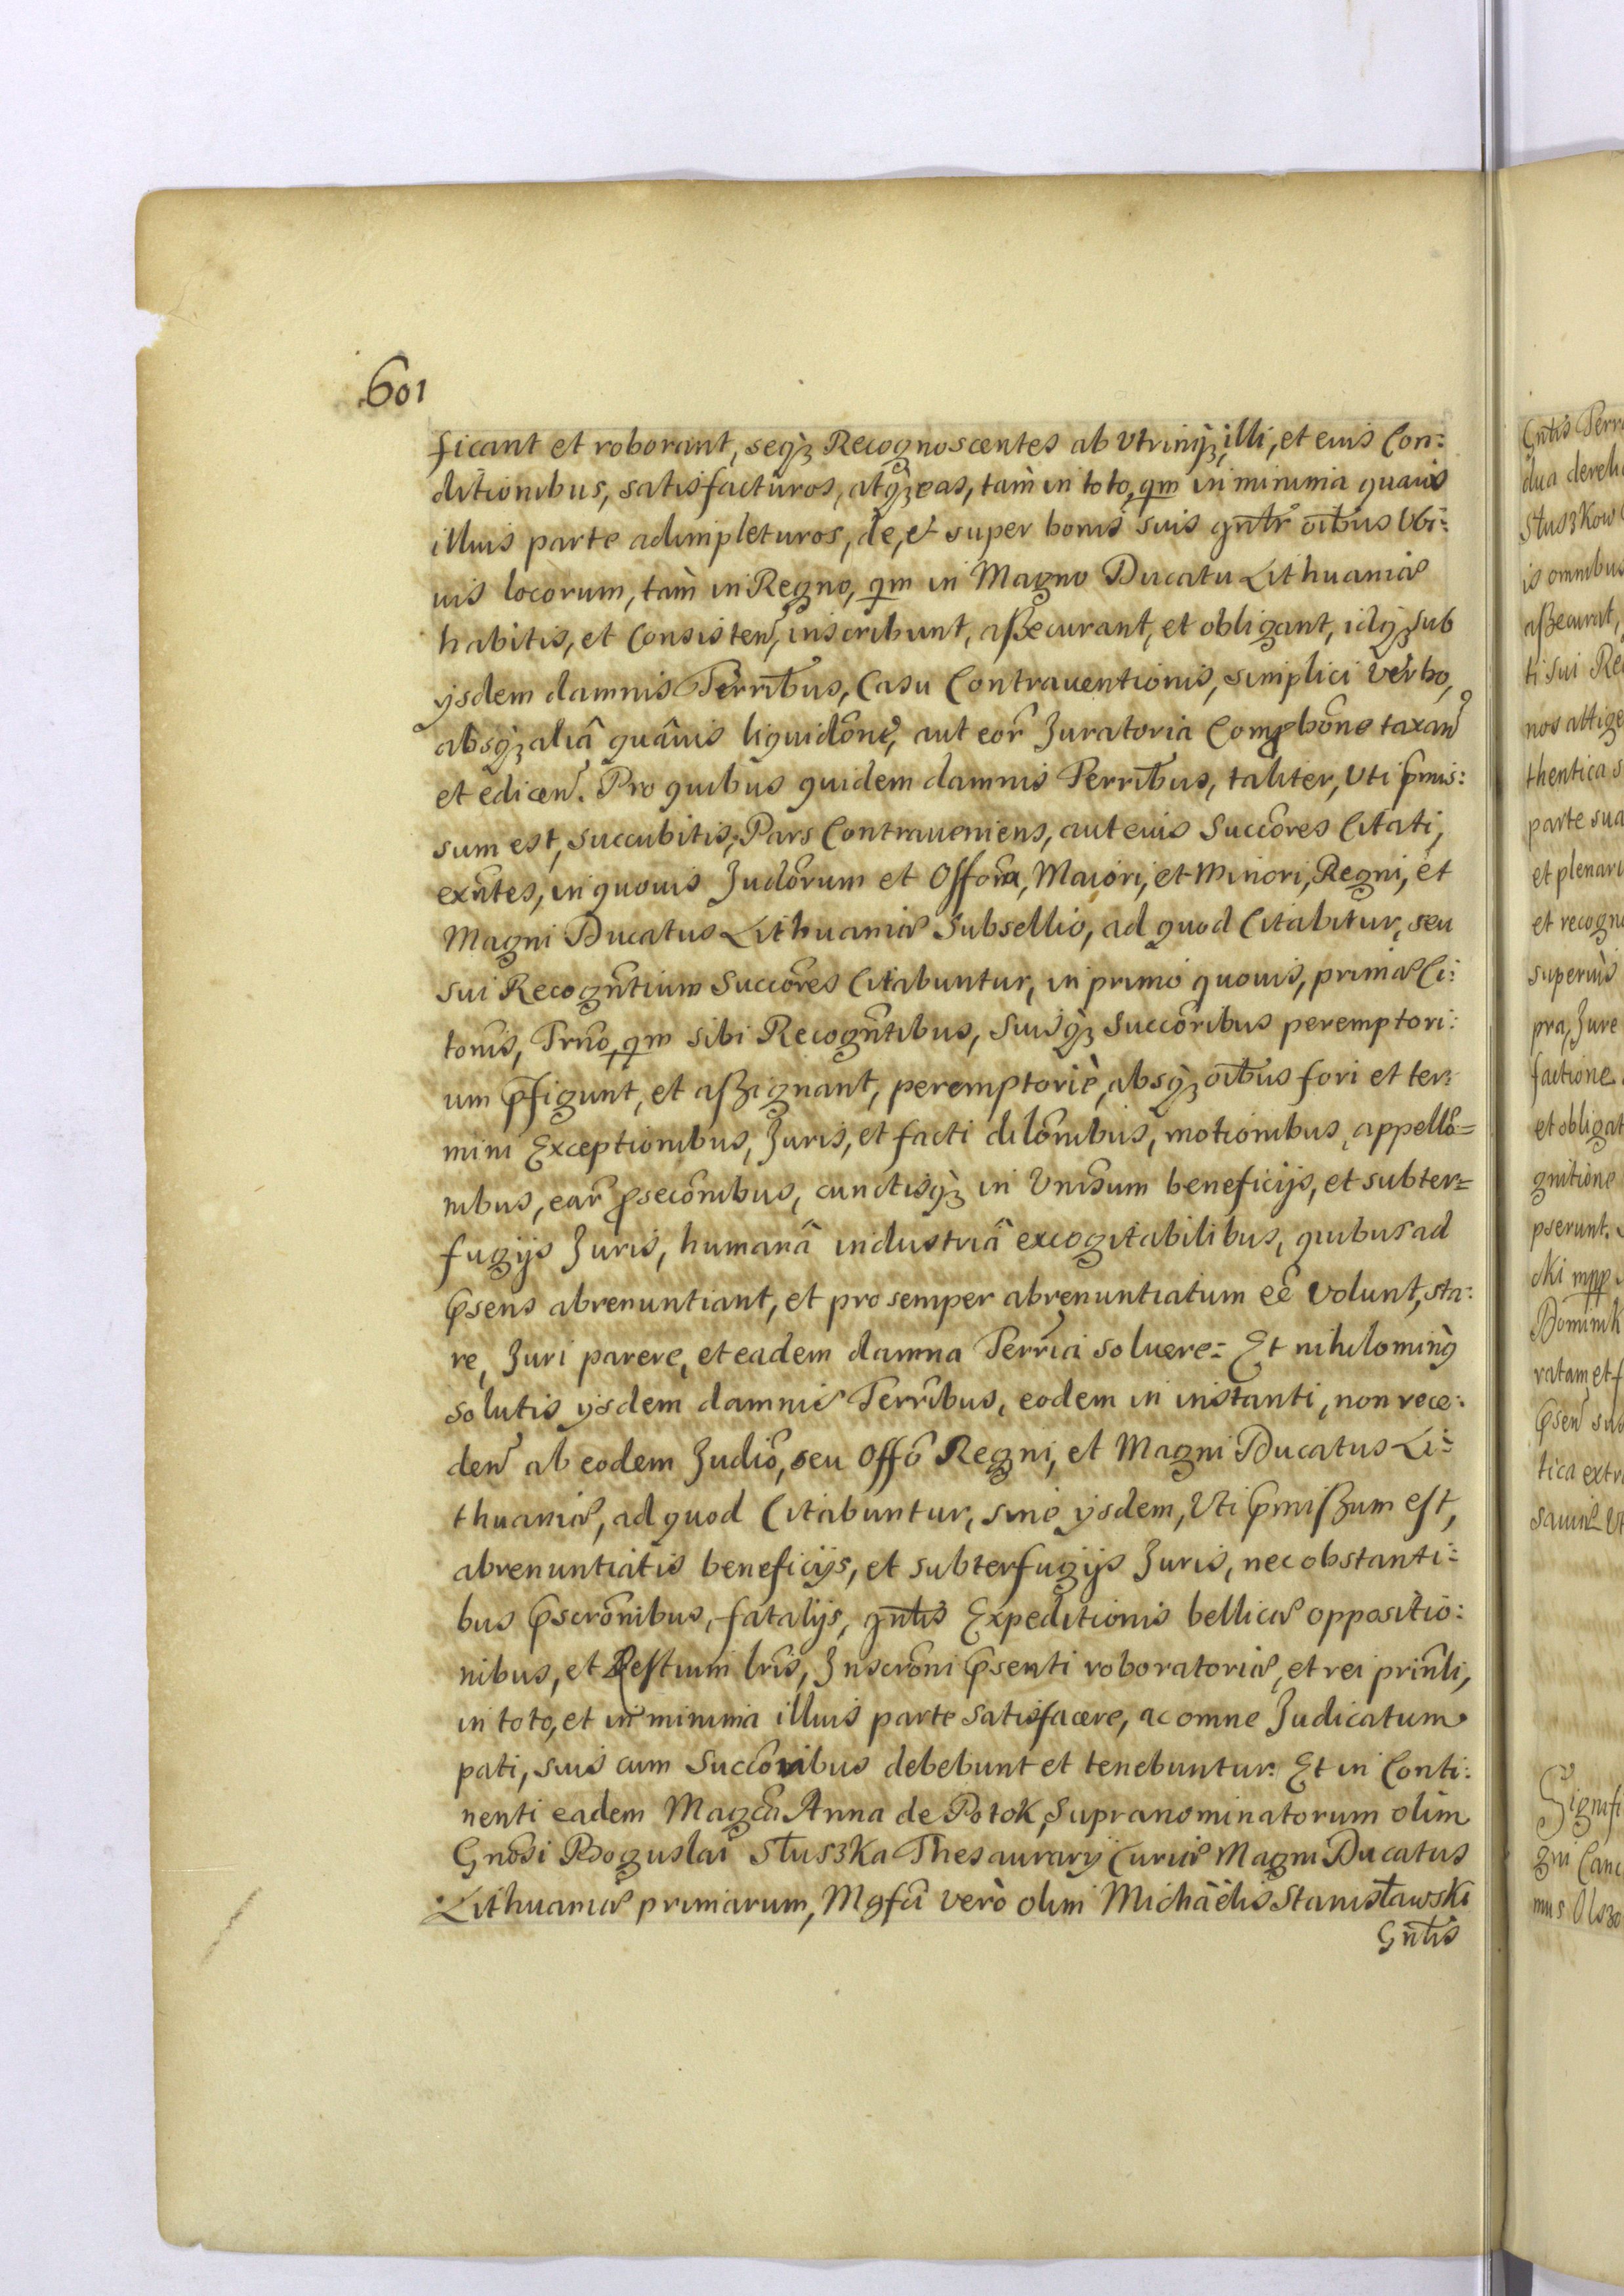 601
ficant et roborant, seqꝫ Recognoscentes ab Vtrinqꝫ, illi, et euis Con:
ditionibus, satisfacturos, atqꝫ eas, tam̀ in toto, qm in minima quauis
illuis parte adimpleturos, de, et super bonis suis gnłr oib̃us Vbi:
uis locorum, tam̀ in Regno, qm in Magno Ducatu Lithuaniæ
habitis, et Consisteñ, inscribunt, aßecurant, et obligant, idqꝫ sub
ysdem damnis Terrib̃us, Casu Contrauentionis, simplici Verbo,
absqꝫ aliâ quâuis liquidõne, aut eor̃ Juratoria Compbõne taxañ
et ediceñ. Pro quibus quidem damnis Terrib̃us, taliter, Vti p̃mis:
sum est, succubitis, Pars Contraueniens, aut euis Succõres Citati,
exñtes, in quouis Judõrum et Offõrũ, Maiori, et Minori, Regni, et
Magni Ducatus Lithuaniæ Subsellio, ad quod Citabitur, seu
sui Recogñtium Succõres Citabuntur, in primo quouis, primæ Ci:
tonis̃, Trñno, qm sibi Recogñtibus, Suisqꝫ Succõribus peremptori:
um p̃figunt, et aßignant, peremptoriè, absqꝫ oib̃us fori et ter:
mini Exceptionibus, Juris, et facti dilõnibus, motionibus, appellõ=
nibus, ear̃ p̱secõnibus, cunctisqꝫ in Vnir̃sum beneficijs, et subter=
fugijs Juris, humanâ industriâ excogitabilibus, quibus ad
p̃sens abrenuntiant, et pro semper abrenuntiatum eẽ Volunt, sta:
re, Juri parere, et eadem damna Terrĩa soluere: Et nihilominq̀
solutis ysdem damnis Terrib̃us, eodem in instanti, non rece:
deñ ab eodem Judiõ, seu Offõ Regni, et Magni Ducatus Li:
thuaniæ, ad quod Citabuntur, sine ysdem, Vti p̃mißum est,
abrenuntiatis beneficijs, et subterfugijs Juris, nec obstanti:
bus p̃scrõnibus, fatalijs, gnłis Expeditionis bellicæ oppositio:
nibus, et Restium lr̃is, Inscrõni p̃senti roboratoriæ, et rei prinłi,
in toto, et in minima illuis parte satisfacere, ac omne Judicatum
pati, suis cum Succõribus debebunt et tenebuntur: Et in Conti:
nenti eadem Magcã Anna de Potok, Supranominatorum olim
Gnõsi Boguslai Słuszka Thesaurarij Curiæ Magni Ducatus
Lithuaniæ primarum, Mgfci verò olim Michàèlis Stanisławski
Gnłis